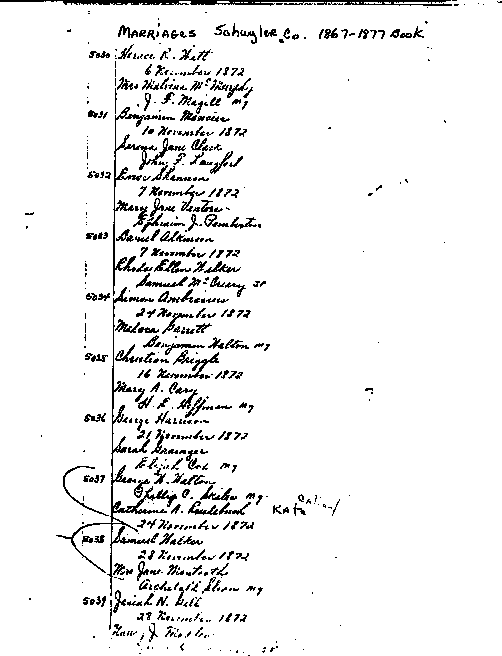 MARRIAGES Schuyler Co. 1867-1877 Book
5030 Horace R. Hatt
6 November 1872
Mrs Malvina McMurphy
J. F. Magill mg
5031 Benjamin
10 November 1872
Serena Jane Clark
John F. Langford
5032 Enos Shannon
7 November 1872
Mary Jane
Ephraim J. Pemberton
5033 Daniel Atkinson
7 November 1872
Rhoda Ellen Walker
Samuel McCreary JP
5034 Simon Ambrosius
24 November 1872
Barrett
Benjamin Walton mg
5035 Christian Briggle
16 November 1872
Mary A. Cary
H. E. Hoffman mg
5036 George Harrison
21 November 1872
Sarah Grainger
Elijah Cox mg
5037 George W. Walton
Phillip C. mg
Catherine A. Kate
24 November 1872
5038 Samuel Walker
28 November 1872
Mrs Jane
Sloan mg
5039 Josiah N.
28 November 1872
J.